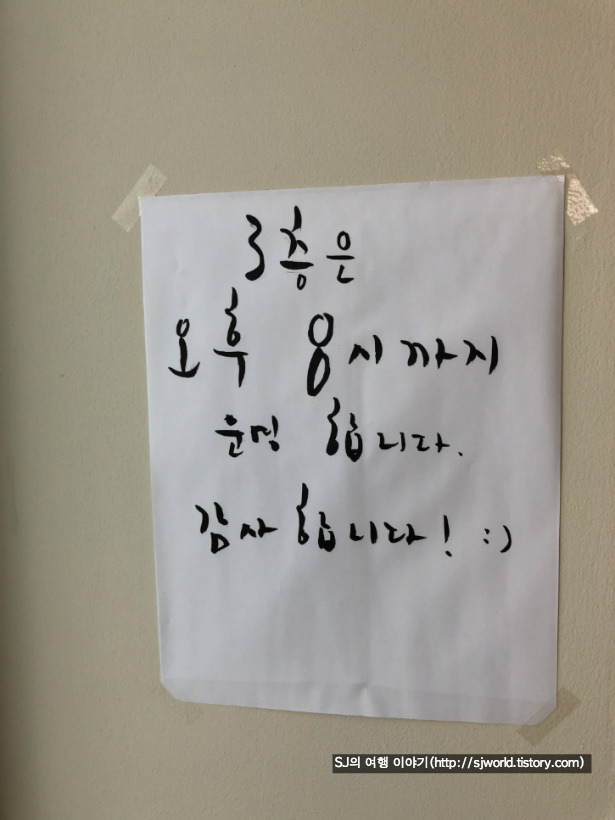 3층은
오후 8시까지
운영 합니다.
감사합니다! :)
SJ의 여행 이야기(http://sjworld.tistory.com)